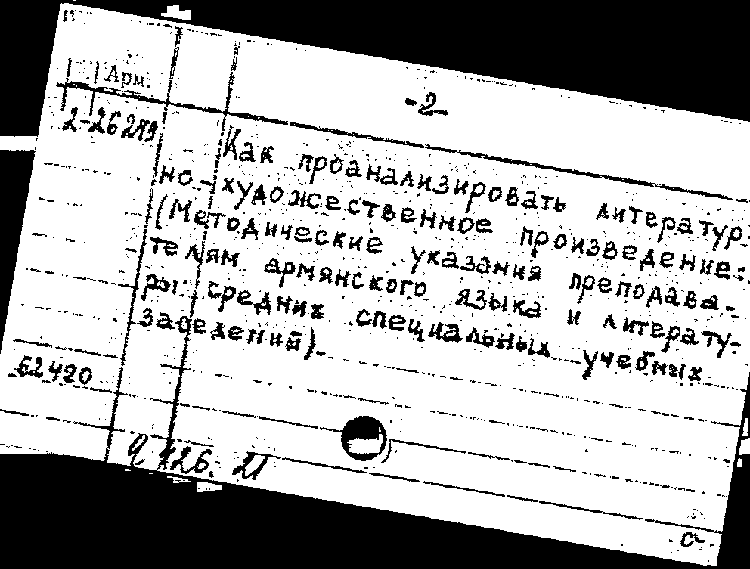 Арм.
-2-
2-26279
Как проанализировать литератур-
но-художественное произведение:
(Методические указания преподава-
телям армянского языка и литерату-
ры средних специальных учебных
заведений).
62420
Ч 426. 21